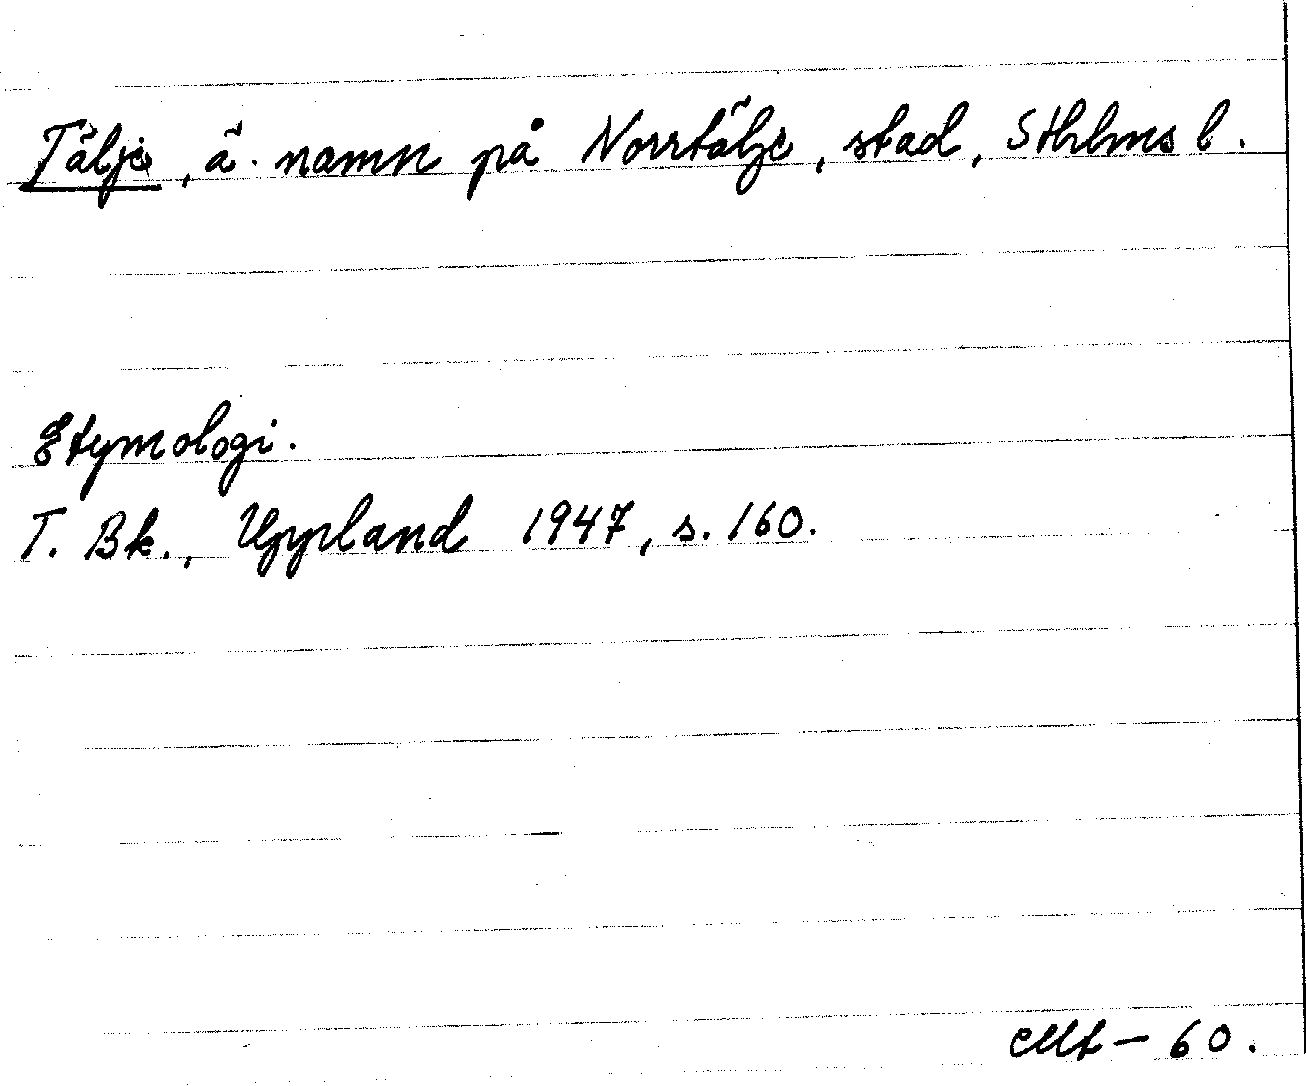 Tälje, ä. namn på Norrtälje, stad, Sthlms l.
Etymologi.
T. Bk., Uppland 1947, s. 160.
Mt – 60.